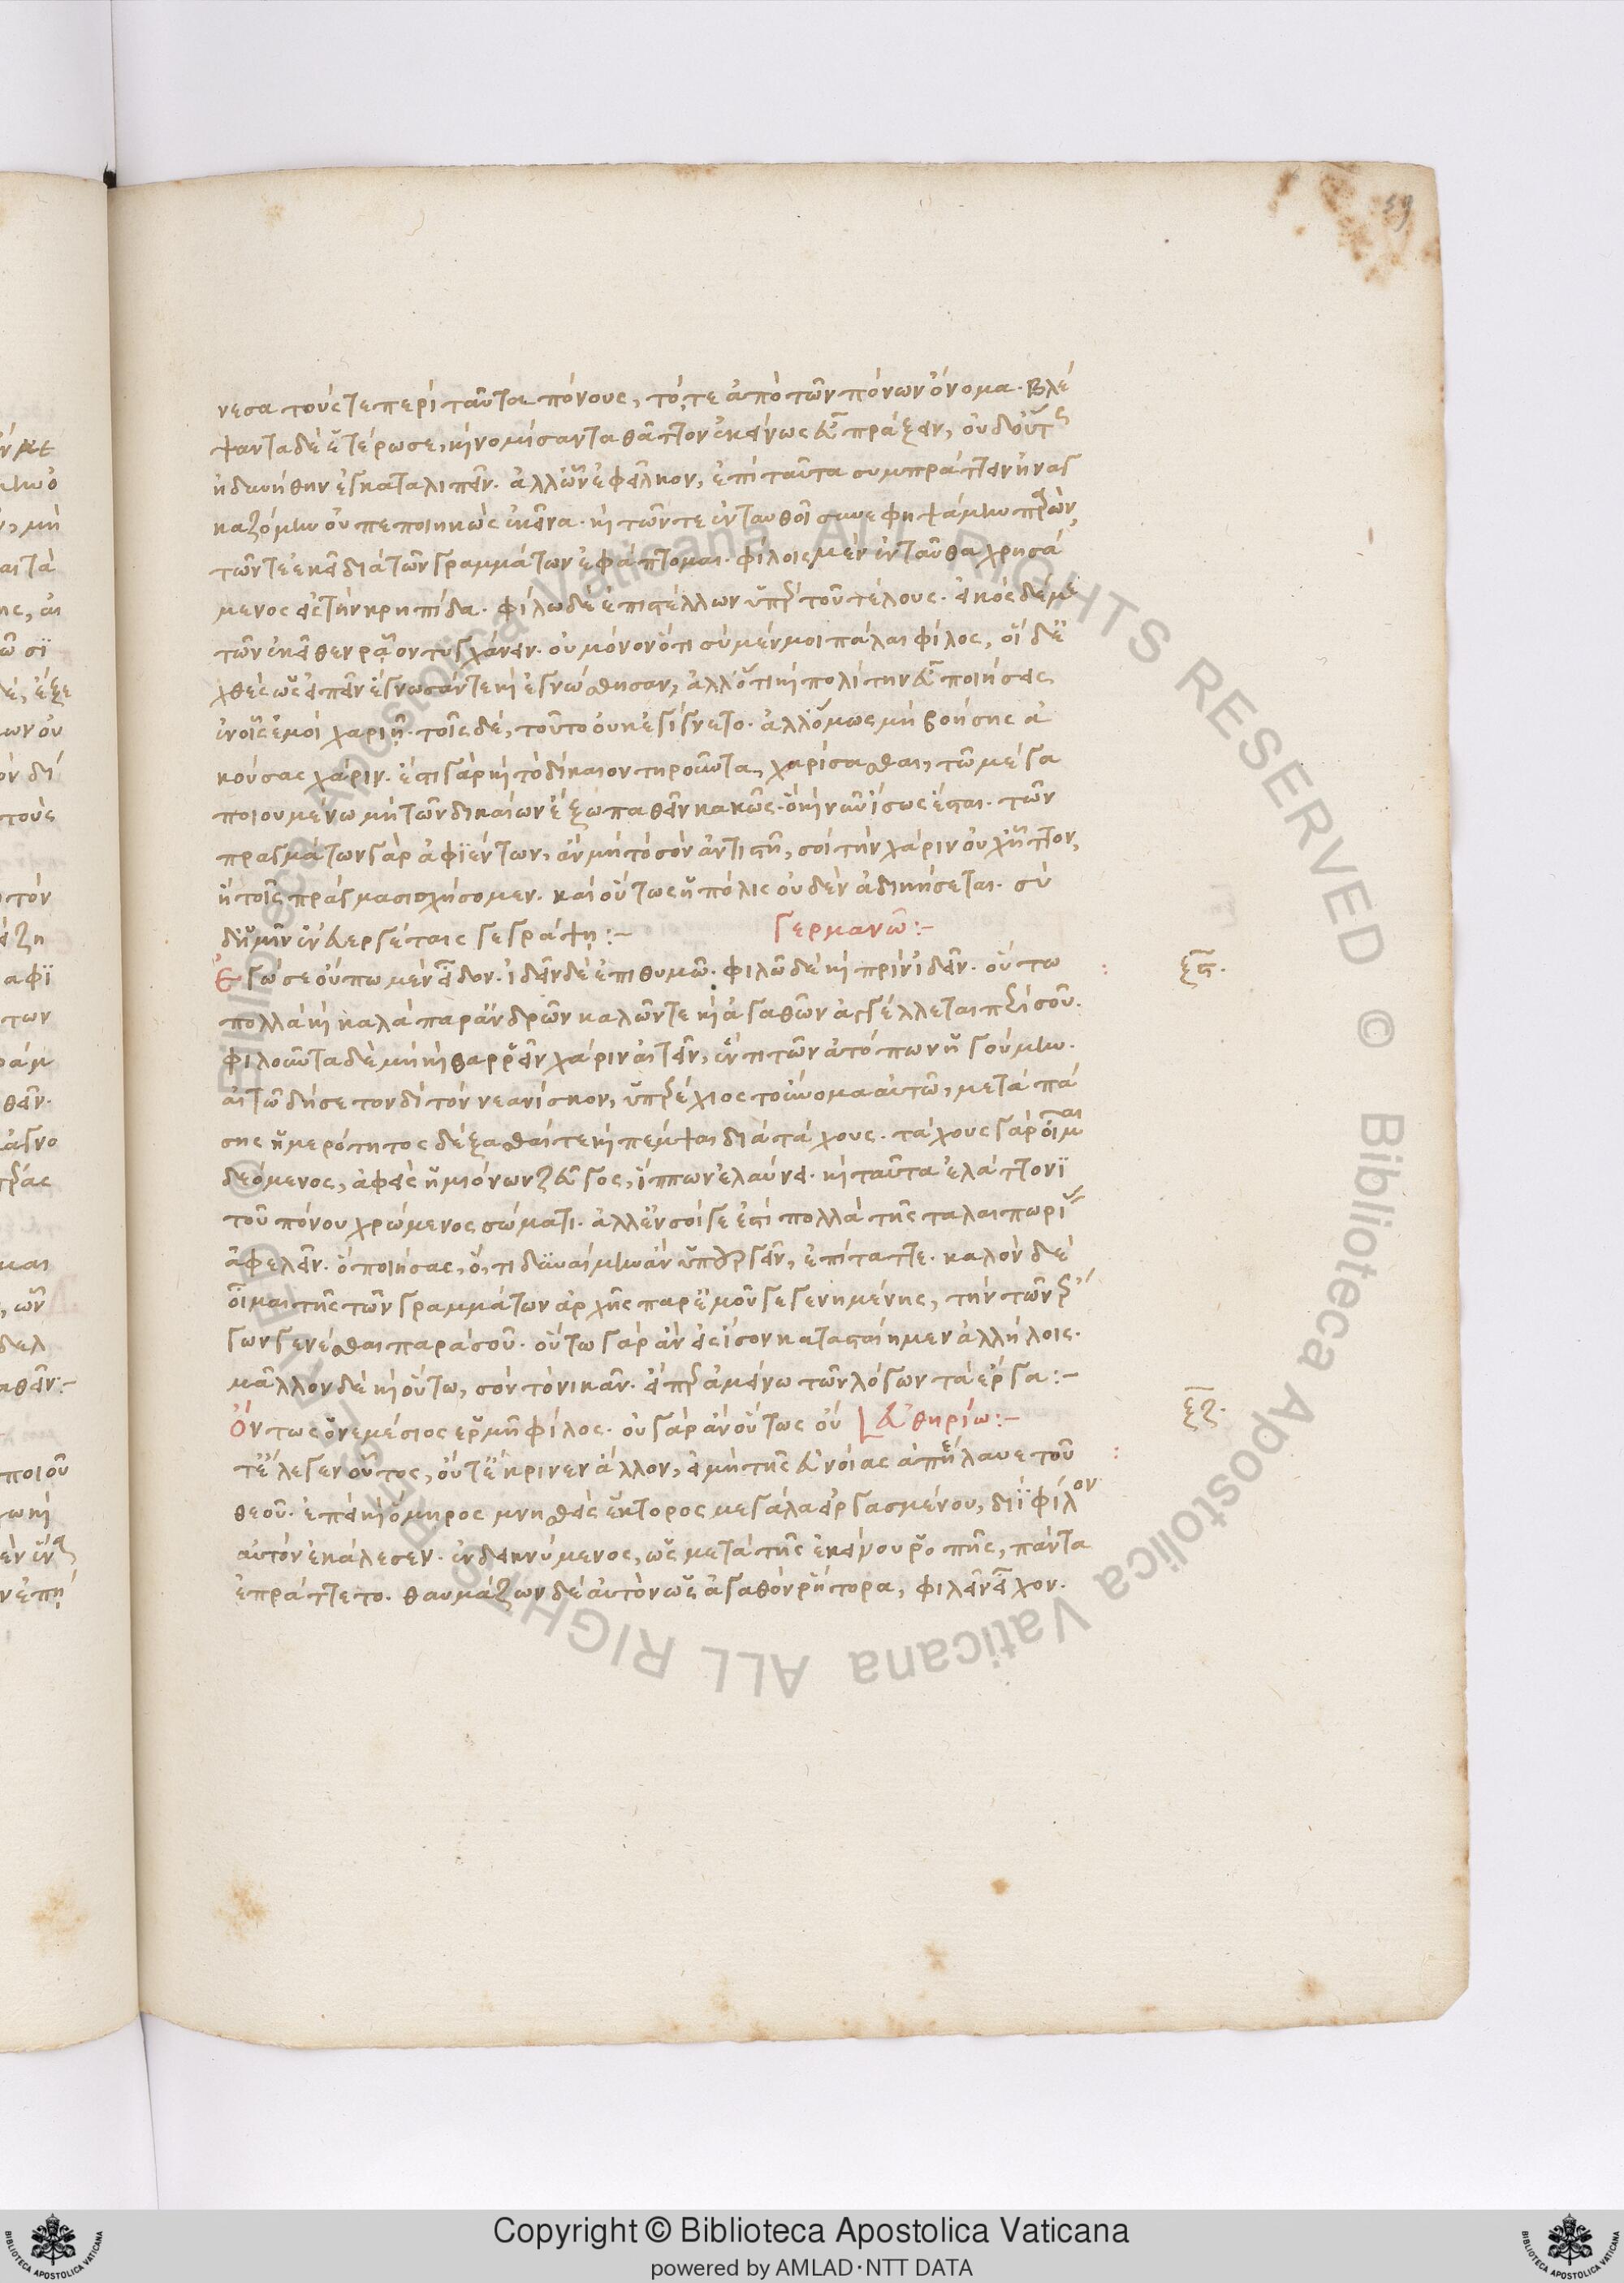 59
νεσα τούς τε περὶ ταῦτα πόνους, τό, τε ἀπὸ τῶν πόνων ὄνομα. βλέ
ψαντα δὲ ἑτέρωσε, καὶ νομίσαντα θᾶττον ἐκείνως εὖ πράξειν, οὐδ' οὕτως
ἠδυνήθην ἐγκαταλιπεῖν. ἀλλ' ὧν ἐφεῖλκον, ἐπὶ ταῦτα συμπράττειν ἠναγ
καζόμην οὐ πεποιηκὼς ἐκεῖνα. καὶ τῶν τε ἐνταυθοῖ συνεφηψάμην πρῴην,
τῶν τε ἐκεῖ διὰ τῶν γραμμάτων ἐφάπτομαι. φίλοις μὲν ἐνταῦθα χρησά
μενος εἰς τὴν κρηπῖδα. φίλῳ δὲ ἐπιστέλλων ὑπὲρ τοῦ τέλους. εἰκὸς δέ με
τῶν ἐκεῖθεν ῥᾷον τυγχάνειν. οὐ μόνον ὅτι σὺ μέν μοι πάλαι φίλος, οἱ δὲ
χθὲς ὡς εἰπεῖν ἔγνωσάν τε καὶ ἐγνώσθησαν, ἀλλ' ὅτι καὶ πολίτην εὖ ποιήσεις
ἐν οἷς ἐμοὶ χαριῇ. τοῖς δὲ, τοῦτο οὐκ ἐγίγνετο. ἀλλ' ὅμως μὴ βοήσῃς ἀ
κούσας χάριν. ἔστι γὰρ καὶ τὸ δίκαιον τηροῦντα, χαρίσασθαι, τῷ μέγα
ποιουμένῳ μὴ τῶν δικαίων ἔξω παθεῖν κακῶς. ὃ καὶ νῦν ἴσως ἔσται. τῶν
πραγμάτων γὰρ ἀφιέντων, ἂν μὴ τὸ σὸν ἀντιστῇ, σοὶ τὴν χάριν οὐχ ἧττον,
ἢ τοῖς πράγμασι σχήσομεν. καὶ οὕτως ἡ πόλις οὐδὲν ἀδικήσεται. σὺ
δ' ἡμῖν ἐν εὐεργέταις γεγράψῃ:- Γερμανῷ:-
Ἐγώ σε οὔπω μὲν εἶδον. ἰδεῖν δὲ ἐπιθυμῶ. φιλῶ δὲ καὶ πρὶν ἰδεῖν. οὕτω
ξϛ.
πολλὰ καὶ καλὰ παρ' ἀνδρῶν καλῶν τε καὶ ἀγαθῶν ἀγγέλλεται περὶ σοῦ.
φιλοῦντα δὲ μὴ καὶ θαρρεῖν χάριν αἰτεῖν, ἕν τι τῶν ἀτόπων ἡγούμην.
αἰτῶ δή σε τονδὶ τὸν νεανίσκον, ὑπερέχιος τοὔνομα αὐτῷ, μετὰ πά
σης ἡμερότητος δέξασθαί τε καὶ πέμψαι διὰ τάχους. τάχους γὰρ οἶμαι
δεόμενος, ἀφεὶς ἡμιόνων ζεῦγος, ἵππων ἐλαύνει. καὶ ταῦτα ἐλάττονι
τοῦ πόνου χρώμενος σώματι. ἀλλ' ἐν σοί γε ἐστὶ πολλὰ τῆς ταλαιπωρίας
ἀφελεῖν. ὃ ποιήσας, ὅ, τι δυναίμην ἂν ὑπουργεῖν, ἐπίταττε. καλὸν δὲ
οἶμαι τῆς τῶν γραμμάτων ἀρχῆς παρ' ἐμοῦ γεγενημένης, τὴν τῶν ἔρ
γων γενέσθαι παρὰ σοῦ. οὕτω γὰρ ἂν εἰς ἴσον κατασταίημεν ἀλλήλοις.
μᾶλλον δὲ καὶ οὕτω, σὸν τὸ νικᾶν. εἴπερ ἀμείνω τῶν λόγων τὰ ἔργα:-
Ὄντως ὁ νεμέσιος ἑρμῇ φίλος. οὐ γὰρ ἂν οὕτως οὔ Εὐθηρίῳ:-
ξζ.
τ' ἔλεγεν οὗτος, οὔτ' ἔκρινεν ἄλλον, εἰ μὴ τῆς εὐνοίας ἀπέλαυε τοῦ
θεοῦ. ἐπεὶ καὶ ὅμηρος μνησθεὶς ἕκτορος μεγάλα εἰργασμένου, διῒ φίλον
αὐτὸν ἐκάλεσεν. ἐνδεικνύμενος, ὡς μετὰ τῆς ἐκείνου ῥοπῆς, πάντα
ἐπράττετο. θαυμάζων δὲ αὐτὸν ὡς ἀγαθὸν ῥήτορα, φιλεῖν εἶχον.
Copyright © Biblioteca Apostolica Vaticana
powered by AMLAD·NTT DATA